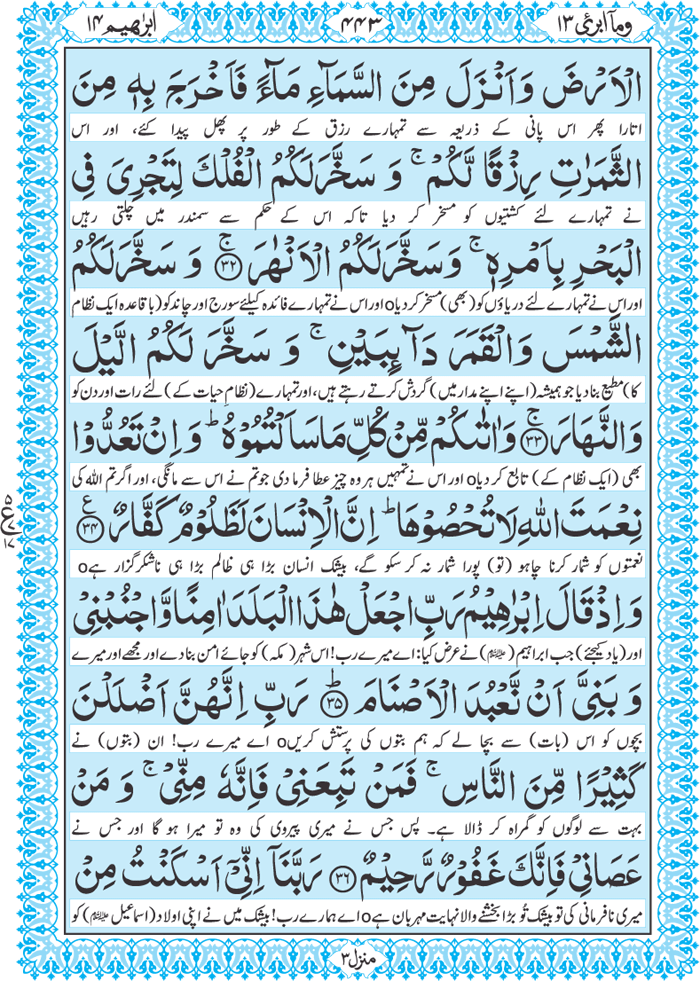 وما ابرئ ۱۳
۴۴۳
ابرٰھیم ۱۴
الْاَرْضَ وَاَنْزَلَ مِنَ السَّمَآءِ مَآءً فَاَخْرَجَ بِهٖ مِنَ
اتارا پھر اس پانی کے ذریعہ سے تمہارے رزق کے طور پر پھل پیدا کئے، اور اس
الثَّمَرٰتِ رِزْقًا لَّكُمْ ۚ وَ سَخَّرَ لَكُمُ الْفُلْكَ لِتَجْرِیَ فِی
نے تمہارے لئے کشتیوں کو مسخر کر دیا تاکہ اس کے حکم سے سمندر میں چلتی رہیں
الْبَحْرِ بِاَمْرِهٖ ۚ وَسَخَّرَ لَكُمُ الْاَنْهٰرَ ۚ ﴿۳۲﴾ وَ سَخَّرَ لَكُمُ
اور اس نے تمہارے لئے دریاؤں کو (بھی) مسخر کر دیاo اور اس نے تمہارے فائدہ کیلئے سورج اور چاند کو (باقاعدہ ایک نظام
الشَّمْسَ وَالْقَمَرَ دَآىِٕبَیْنِ ۚ وَ سَخَّرَ لَكُمُ الَّیْلَ
کا) مطیع بنا دیا جو ہمیشہ (اپنے اپنے مدار میں) گردش کرتے رہتے ہیں، اور تمہارے (نظامِ حیات کے) لئے رات اور دن کو
وَالنَّهَارَ ۚ ﴿۳۳﴾ وَاٰتٰىكُمْ مِّنْ كُلِّ مَا سَاَلْتُمُوْهُ ؕ وَ اِنْ تَعُدُّوْا
بھی (ایک نظام کے) تابع کر دیاo اور اس نے تمہیں ہر وہ چیز عطا فرما دی جو تم نے اس سے مانگی، اور اگر تم اللہ کی
نِعْمَتَ اللّٰهِ لَا تُحْصُوْهَا ؕ اِنَّ الْاِنْسَانَ لَظَلُوْمٌ كَفَّارٌ ﴿۳۴﴾ ع
نعمتوں کو شمار کرنا چاہو (تو) پورا شمار نہ کر سکو گے، بیشک انسان بڑا ہی ظالم بڑا ہی ناشکرگزار ہےo
وَ اِذْ قَالَ اِبْرٰهِیْمُ رَبِّ اجْعَلْ هٰذَا الْبَلَدَ اٰمِنًا وَّ اجْنُبْنِیْ
اور (یاد کیجئے) جب ابراہیم (علیہ السلام) نے عرض کیا: اے میرے رب! اس شہر (مکہ) کو جائے امن بنا دے اور مجھے اور میرے
وَ بَنِیَّ اَنْ نَّعْبُدَ الْاَصْنَامَ ؕ ﴿۳۵﴾ رَبِّ اِنَّهُنَّ اَضْلَلْنَ
بچوں کو اس (بات) سے بچا لے کہ ہم بتوں کی پرستش کریںo اے میرے رب! ان (بتوں) نے
كَثِیْرًا مِّنَ النَّاسِ ۚ فَمَنْ تَبِعَنِیْ فَاِنَّهٗ مِنِّیْ ۚ وَ مَنْ
بہت سے لوگوں کو گمراہ کر ڈالا ہے۔ پس جس نے میری پیروی کی وہ تو میرا ہو گا اور جس نے
عَصَانِیْ فَاِنَّكَ غَفُوْرٌ رَّحِیْمٌ ﴿۳۶﴾ رَبَّنَاۤ اِنِّیْۤ اَسْكَنْتُ مِنْ
میری نافرمانی کی تو بیشک تُو بڑا بخشنے والا نہایت مہربان ہےo اے ہمارے رب! بیشک میں نے اپنی اولاد (اسماعیل علیہ السلام) کو
منزل ۳